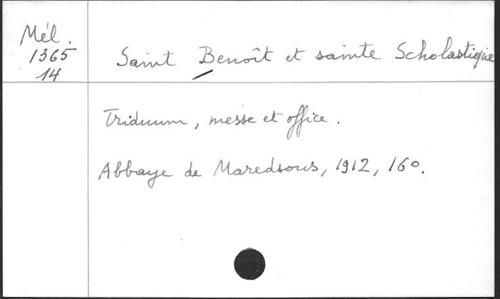 Mél.
1365
14
Saint Benoît et sainte Scholastique
Triduum, messe et office.
Abbaye de Maredsous, 1912, 16°.